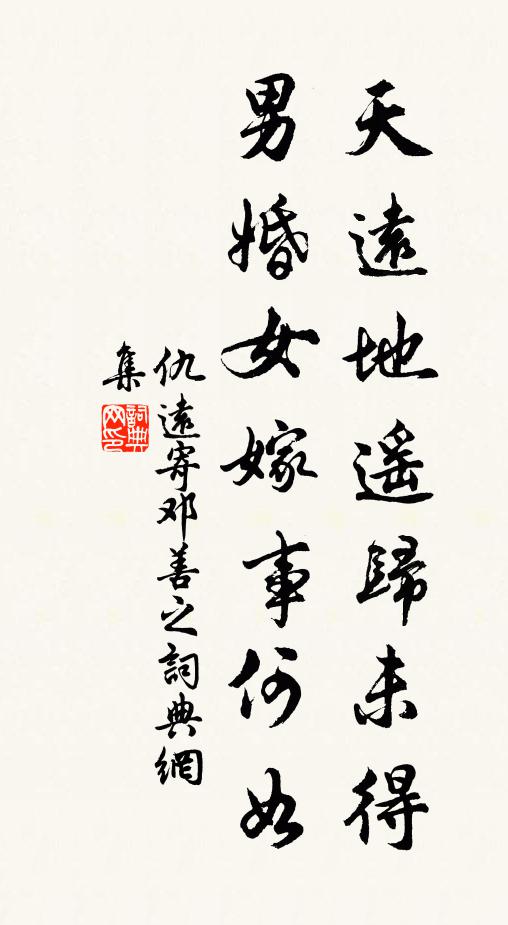 天遠地遥歸未得
男婚女嫁事何如
仇遠寄邓善之詞典網
集
詞典
网印